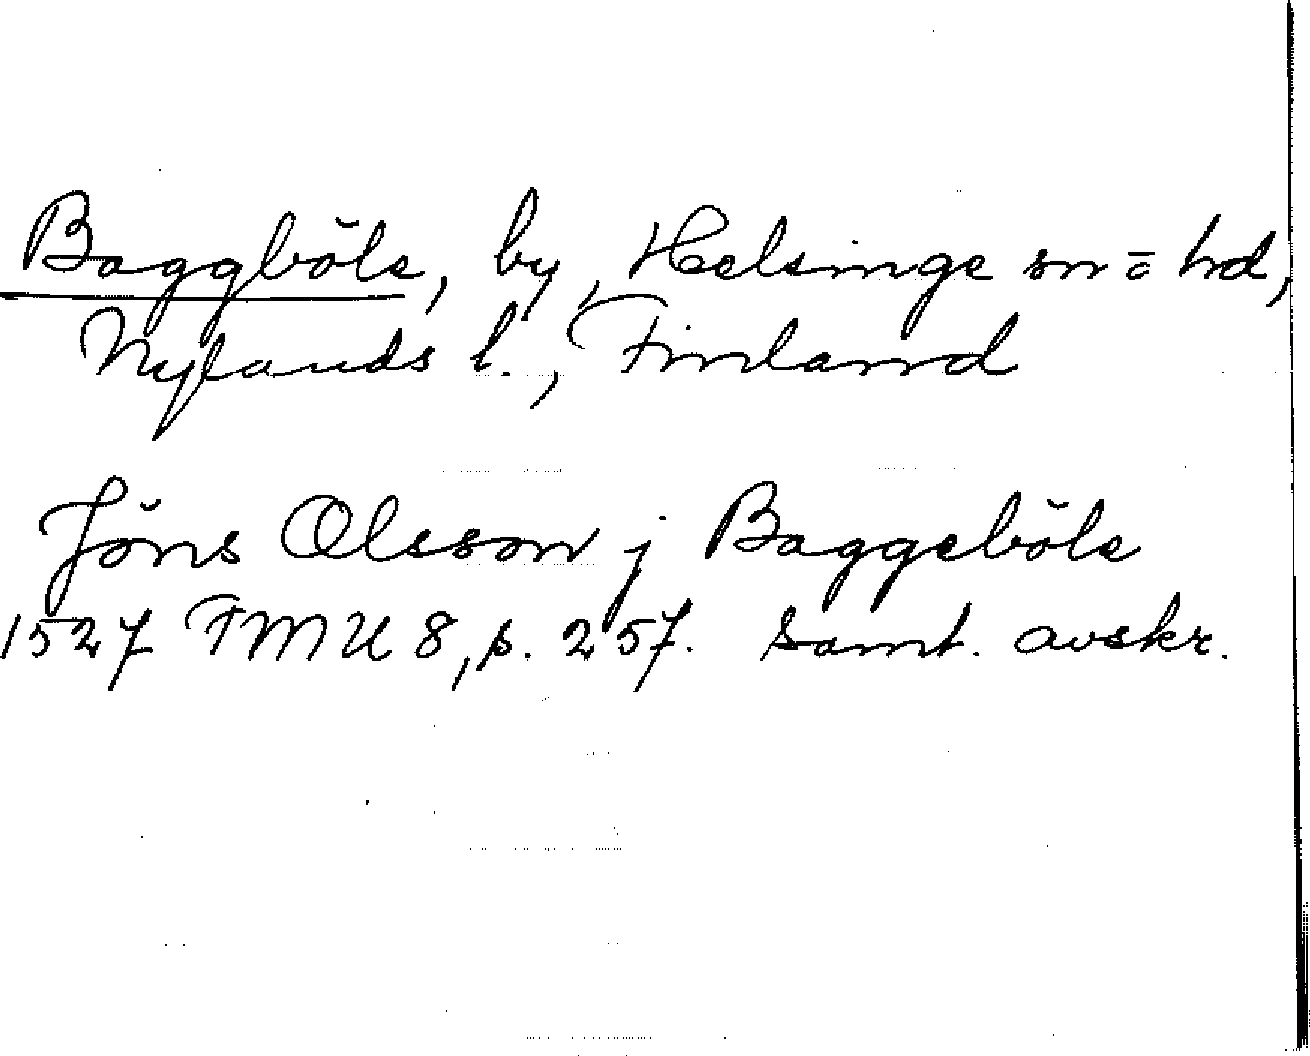 Baggböle, by, Helsinge sn o hd,
Nylands l., Finland
Jöns Olsson j Baggeböle
1527 FMU 8, p. 257. Samt. avskr.